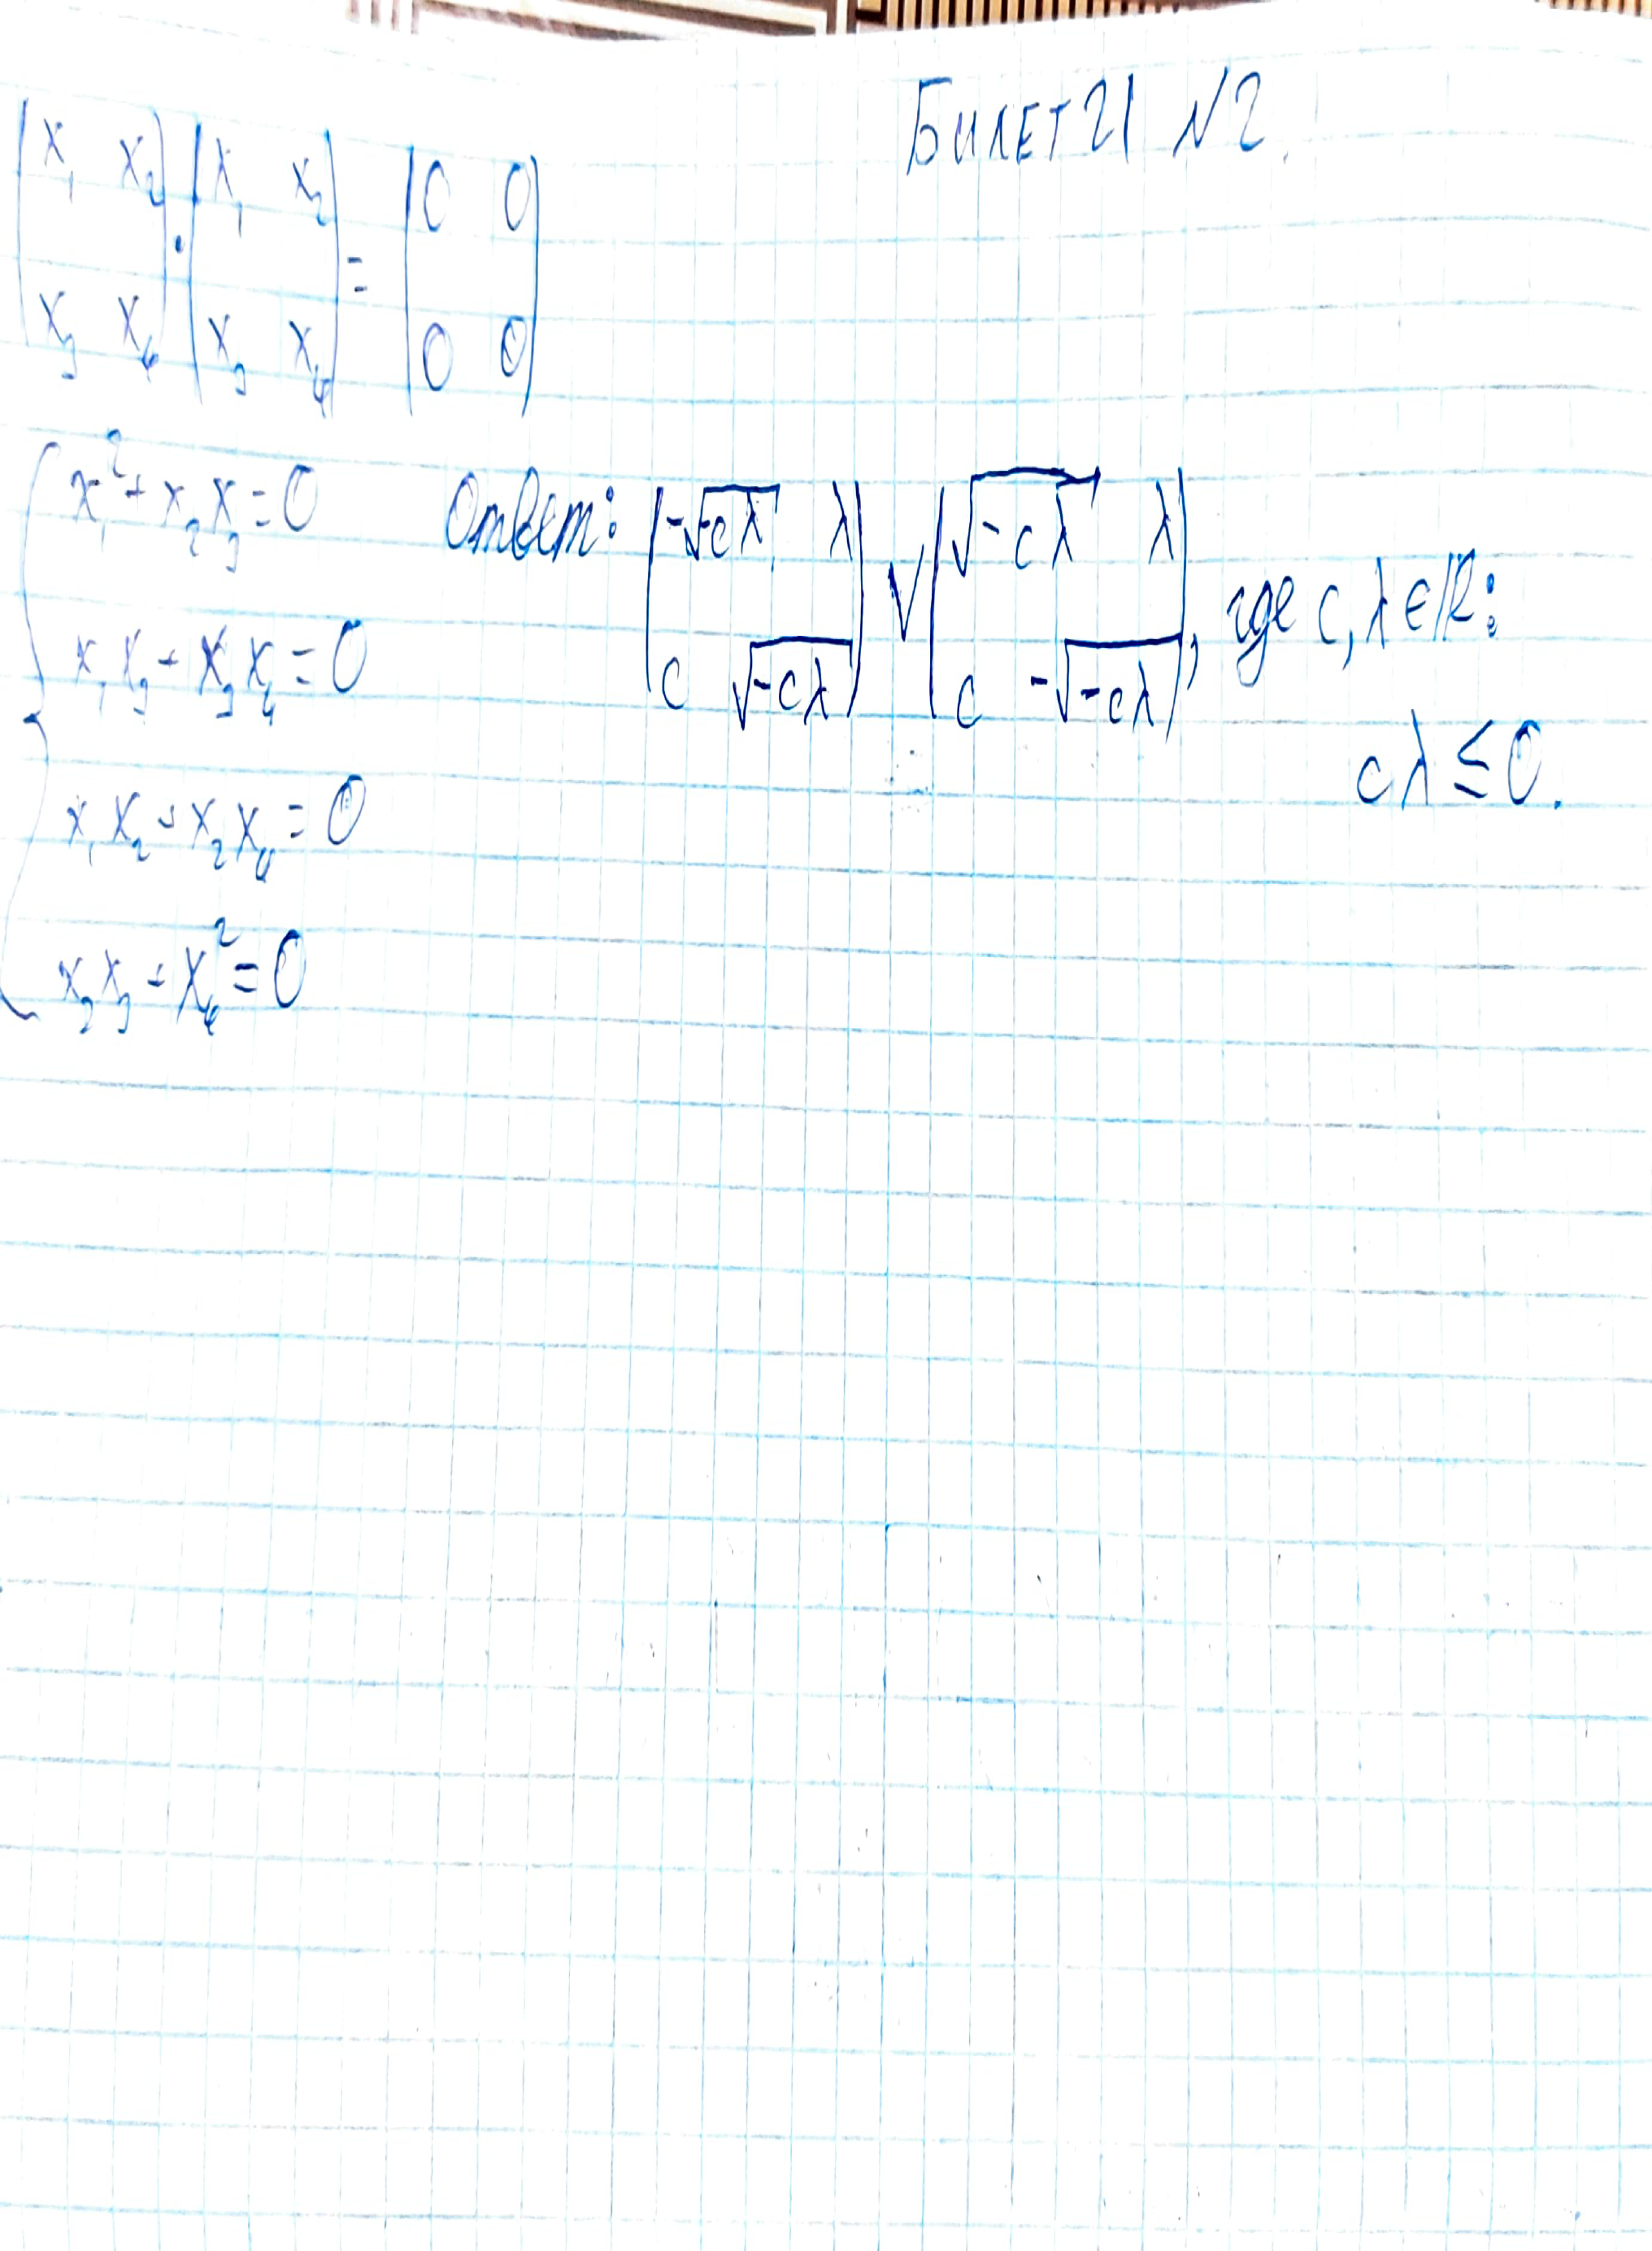 Билет 21 №2.
|x₁ x₂| · |x₁ x₂| = |0 0|
|x₃ x₄| |x₃ x₄| |0 0|
x₁² + x₂x₃ = 0
x₁x₃ + x₃x₄ = 0
x₁x₂ + x₂x₄ = 0
x₂x₃ + x₄² = 0
Ответ: |-√-cλ λ| ∨ |√-cλ λ|, где c, λ ∈ ℝ:
|c √-cλ| |c -√-cλ|
cλ ≤ 0.